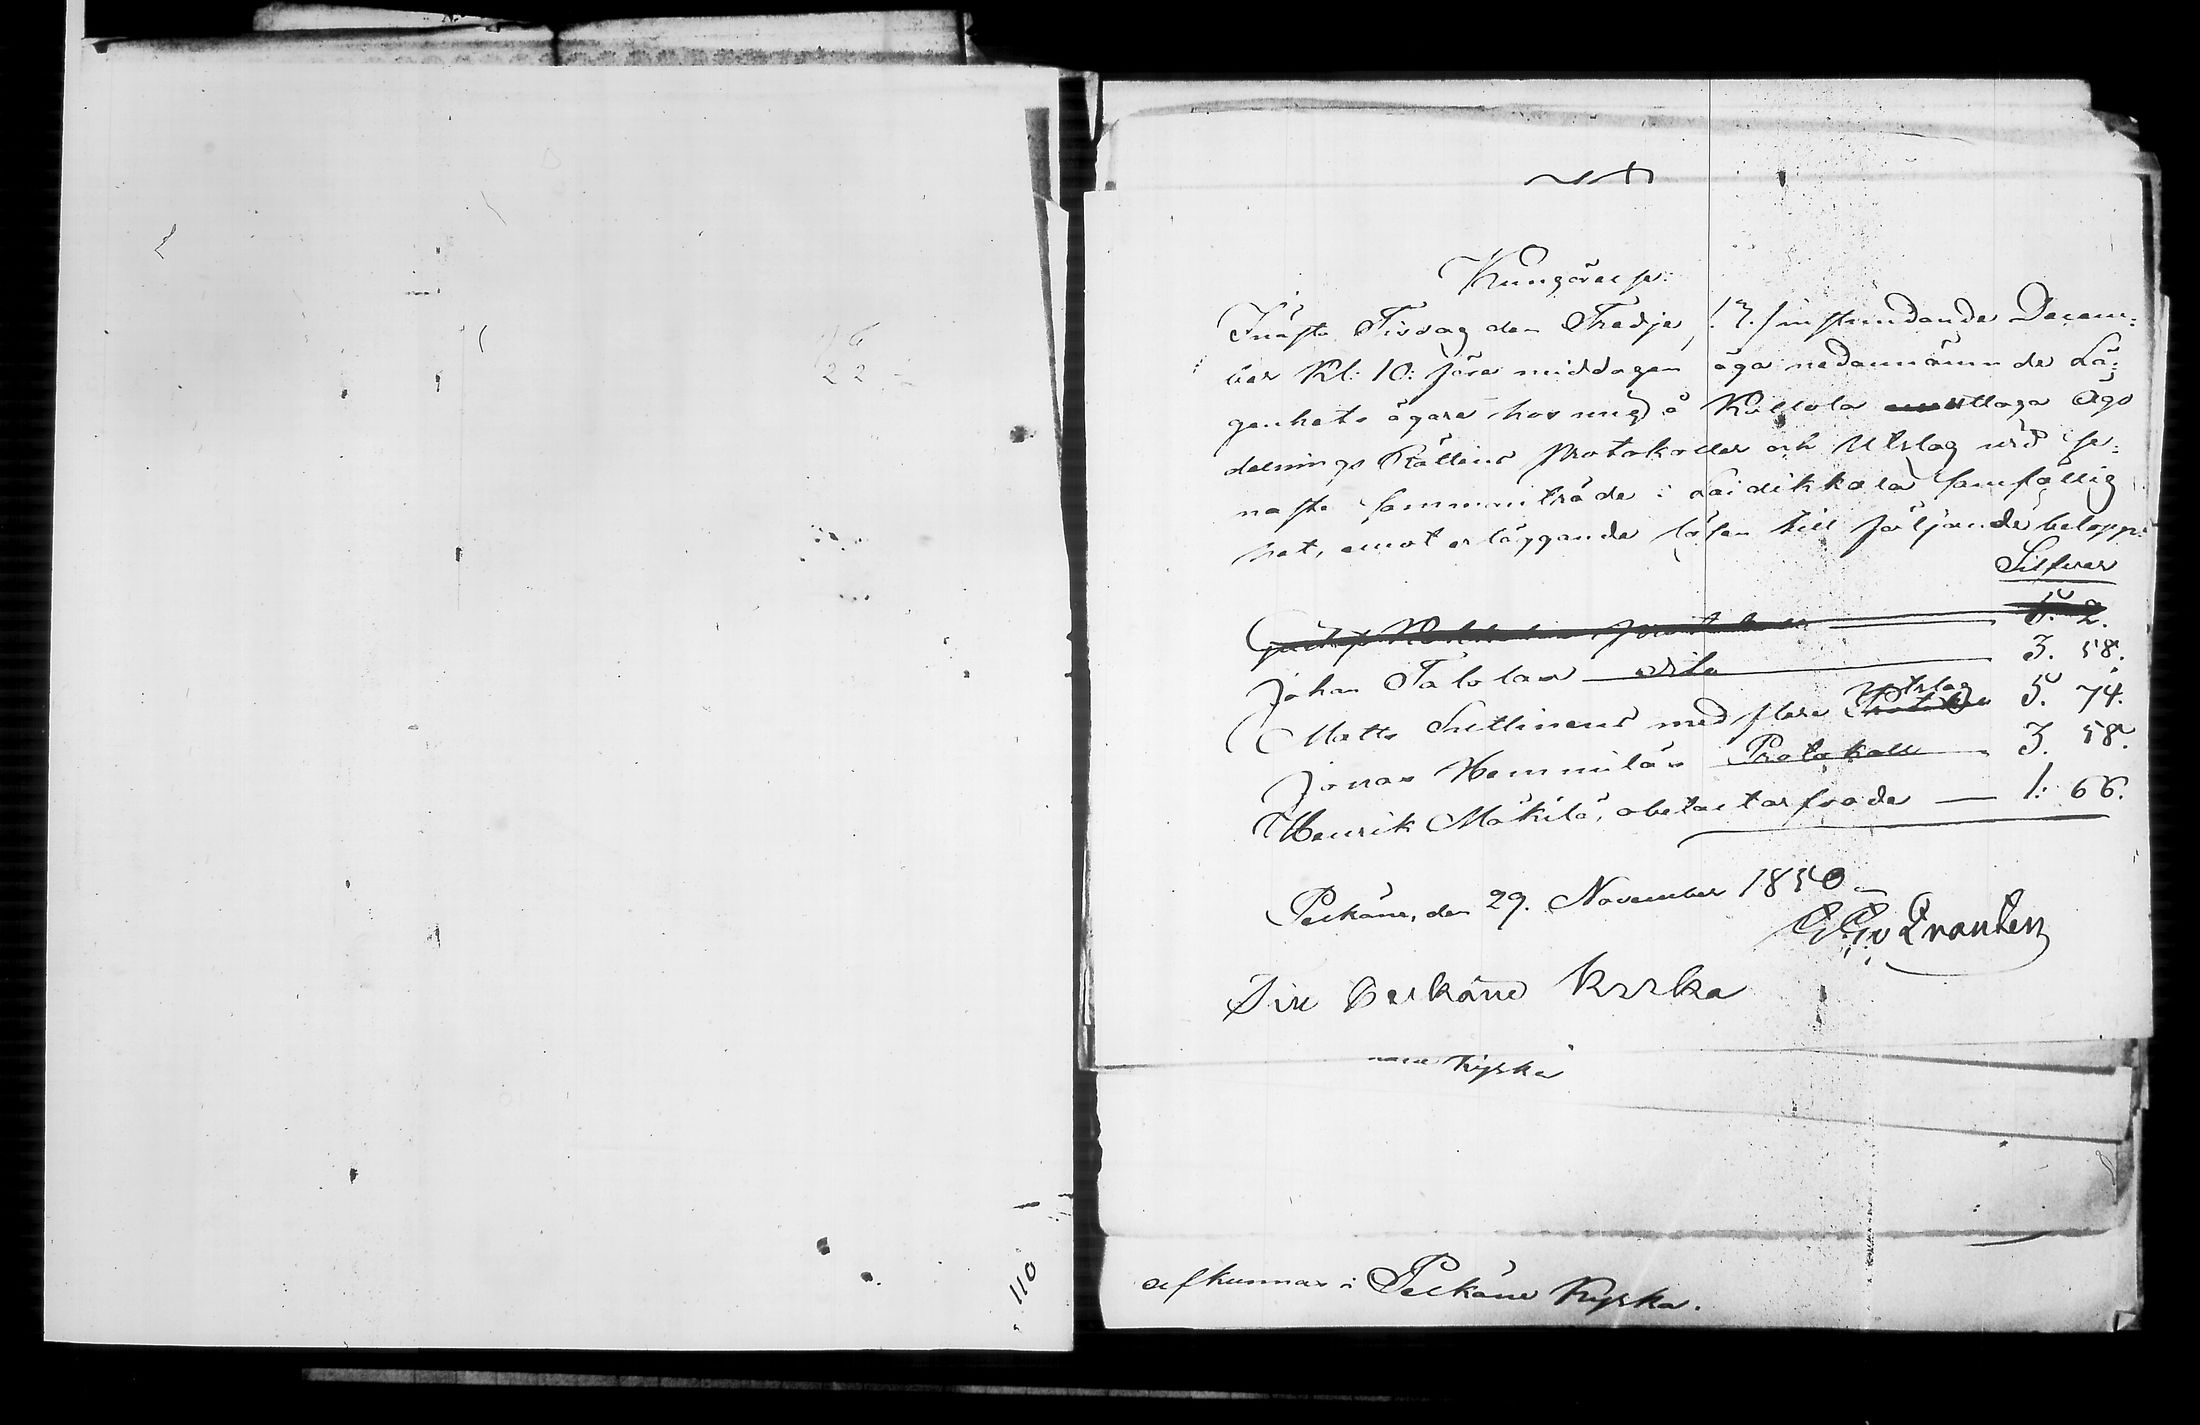 Kungörelse.
Nästa Tisdag den Tredje /:3./ instundande Decem:
ber Kl: 10: före middagen äga nedannämnde Lä:
genhets ägare hos mig å Kallola uttaga Ägo
delnings Rättens Protokoller och Utslag vid se:
naste sammanträde i Laidikkala samfällig
het, emot erläggande lösen till följande belopp:
Silfver
5. 2.
Johan Talolas dito 3. 58.
Matts Suttinens med flere Utslag 5. 74.
Jonas Hemmiläs Protokoll 3. 58.
Henrik Mäkilä, obetalt arfvode 1: 66.
Pelkäne, den 29. November 1850
Pelkäne Kyrka
Kyrka
afkunnas i Pelkäne Kyrka.
110